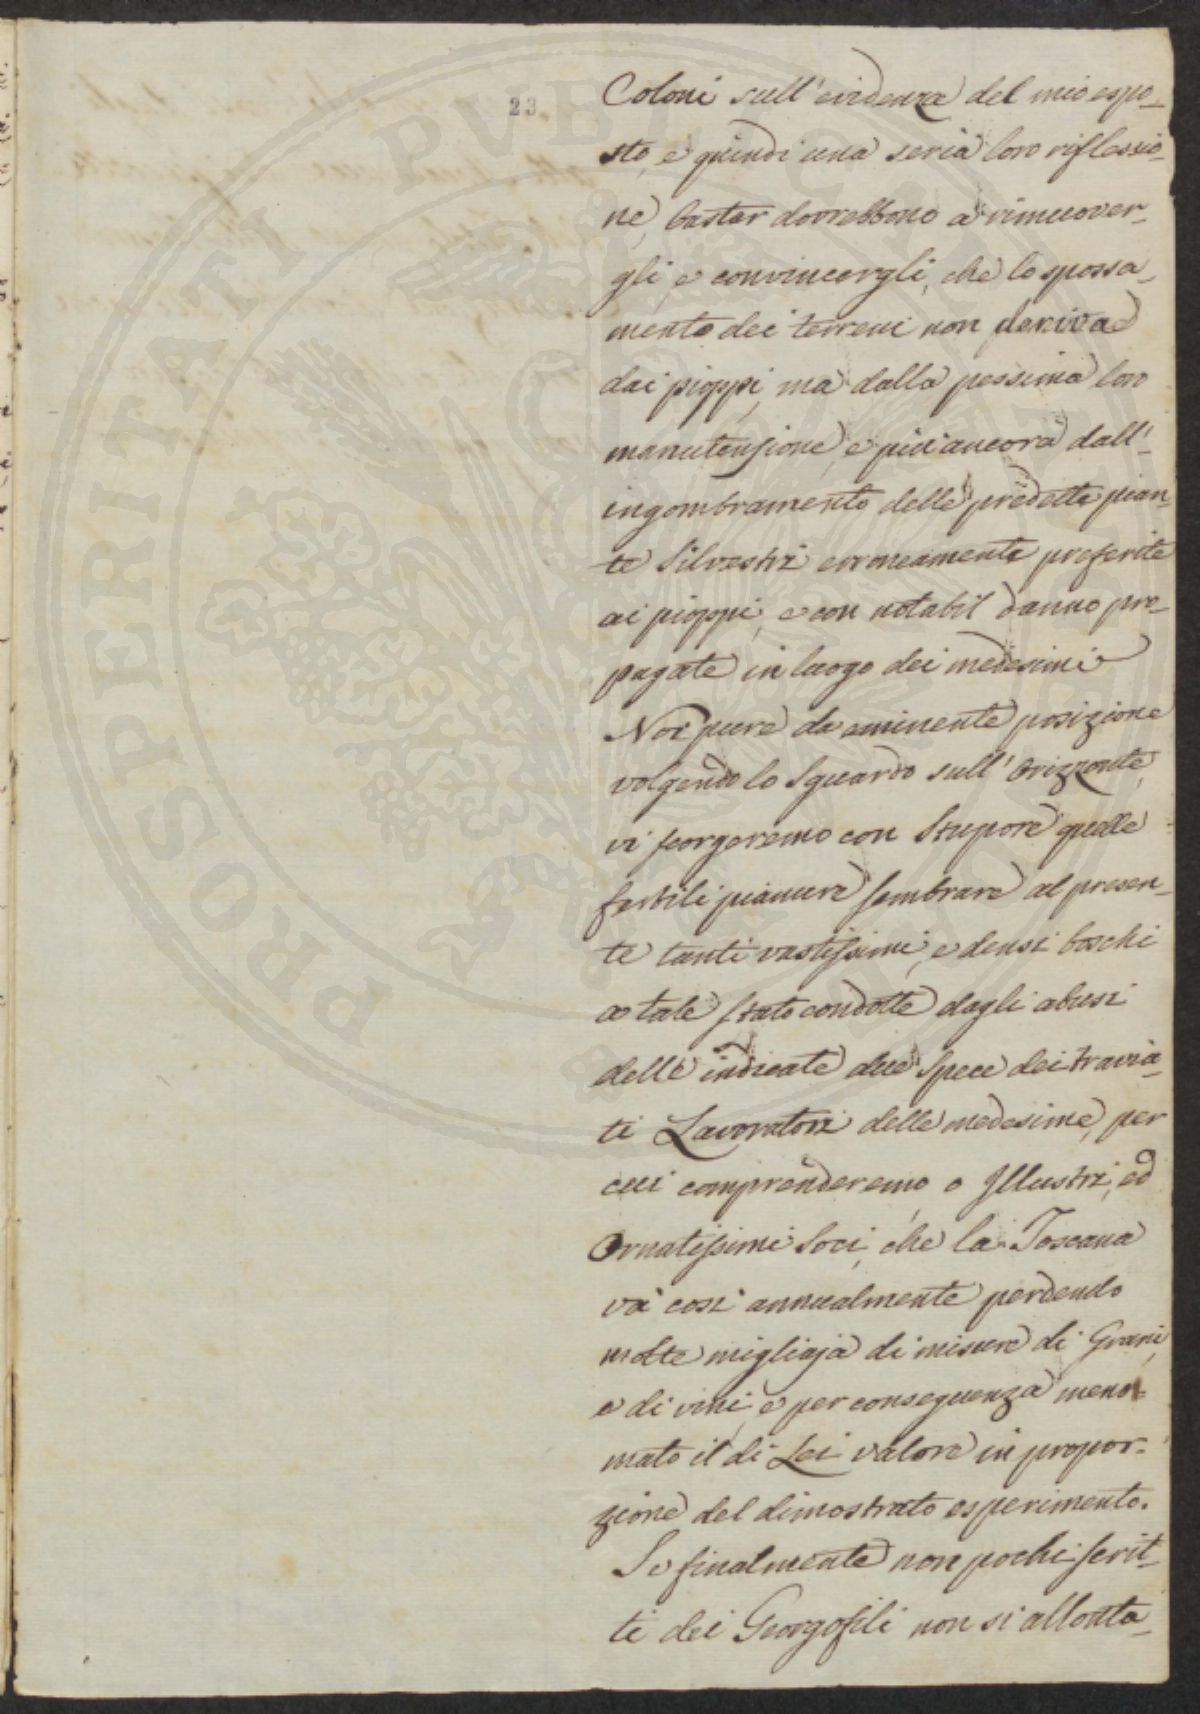 23
Coloni sull'evidenza del mio espo-
sto, e quindi una seria loro riflessio-
ne, bastar dovrebbono a rimuover-
gli, e convincergli, che lo spossa-
mento dei terreni non deriva
dai pioppi, ma dalla pessima loro
manutensione, e più ancora dall'
ingombramento delle predette pian-
te Silvestri erroneamente preferite
ai pioppi, e con notabil danno pro-
pagate in luogo dei medesimi
Noi pure da eminente posizione
volgendo lo Sguardo sull'Orizzonte,
vi scorgeremo con Stupore quelle
fertili pianure sembrare al presen-
te tanti vastissimi, e densi boschi
a tale stato condotte dagli abusi
delle indicate due Spece dei travia-
ti Lavoratori delle medesime, per
cui comprenderemo o Illustri, ed
Ornatissimi Soci, che la Toscana
và così annualmente perdendo
molte migliaja di misure di Grani,
e di vini, e per conseguenza meno-
mato il di Lei valore in propor-
zione del dimostrato esperimento.
Se finalmente non pochi scrit-
ti dei Georgofili non si allonta-
PROSPERITATI PVBLICAE AVGENDAE